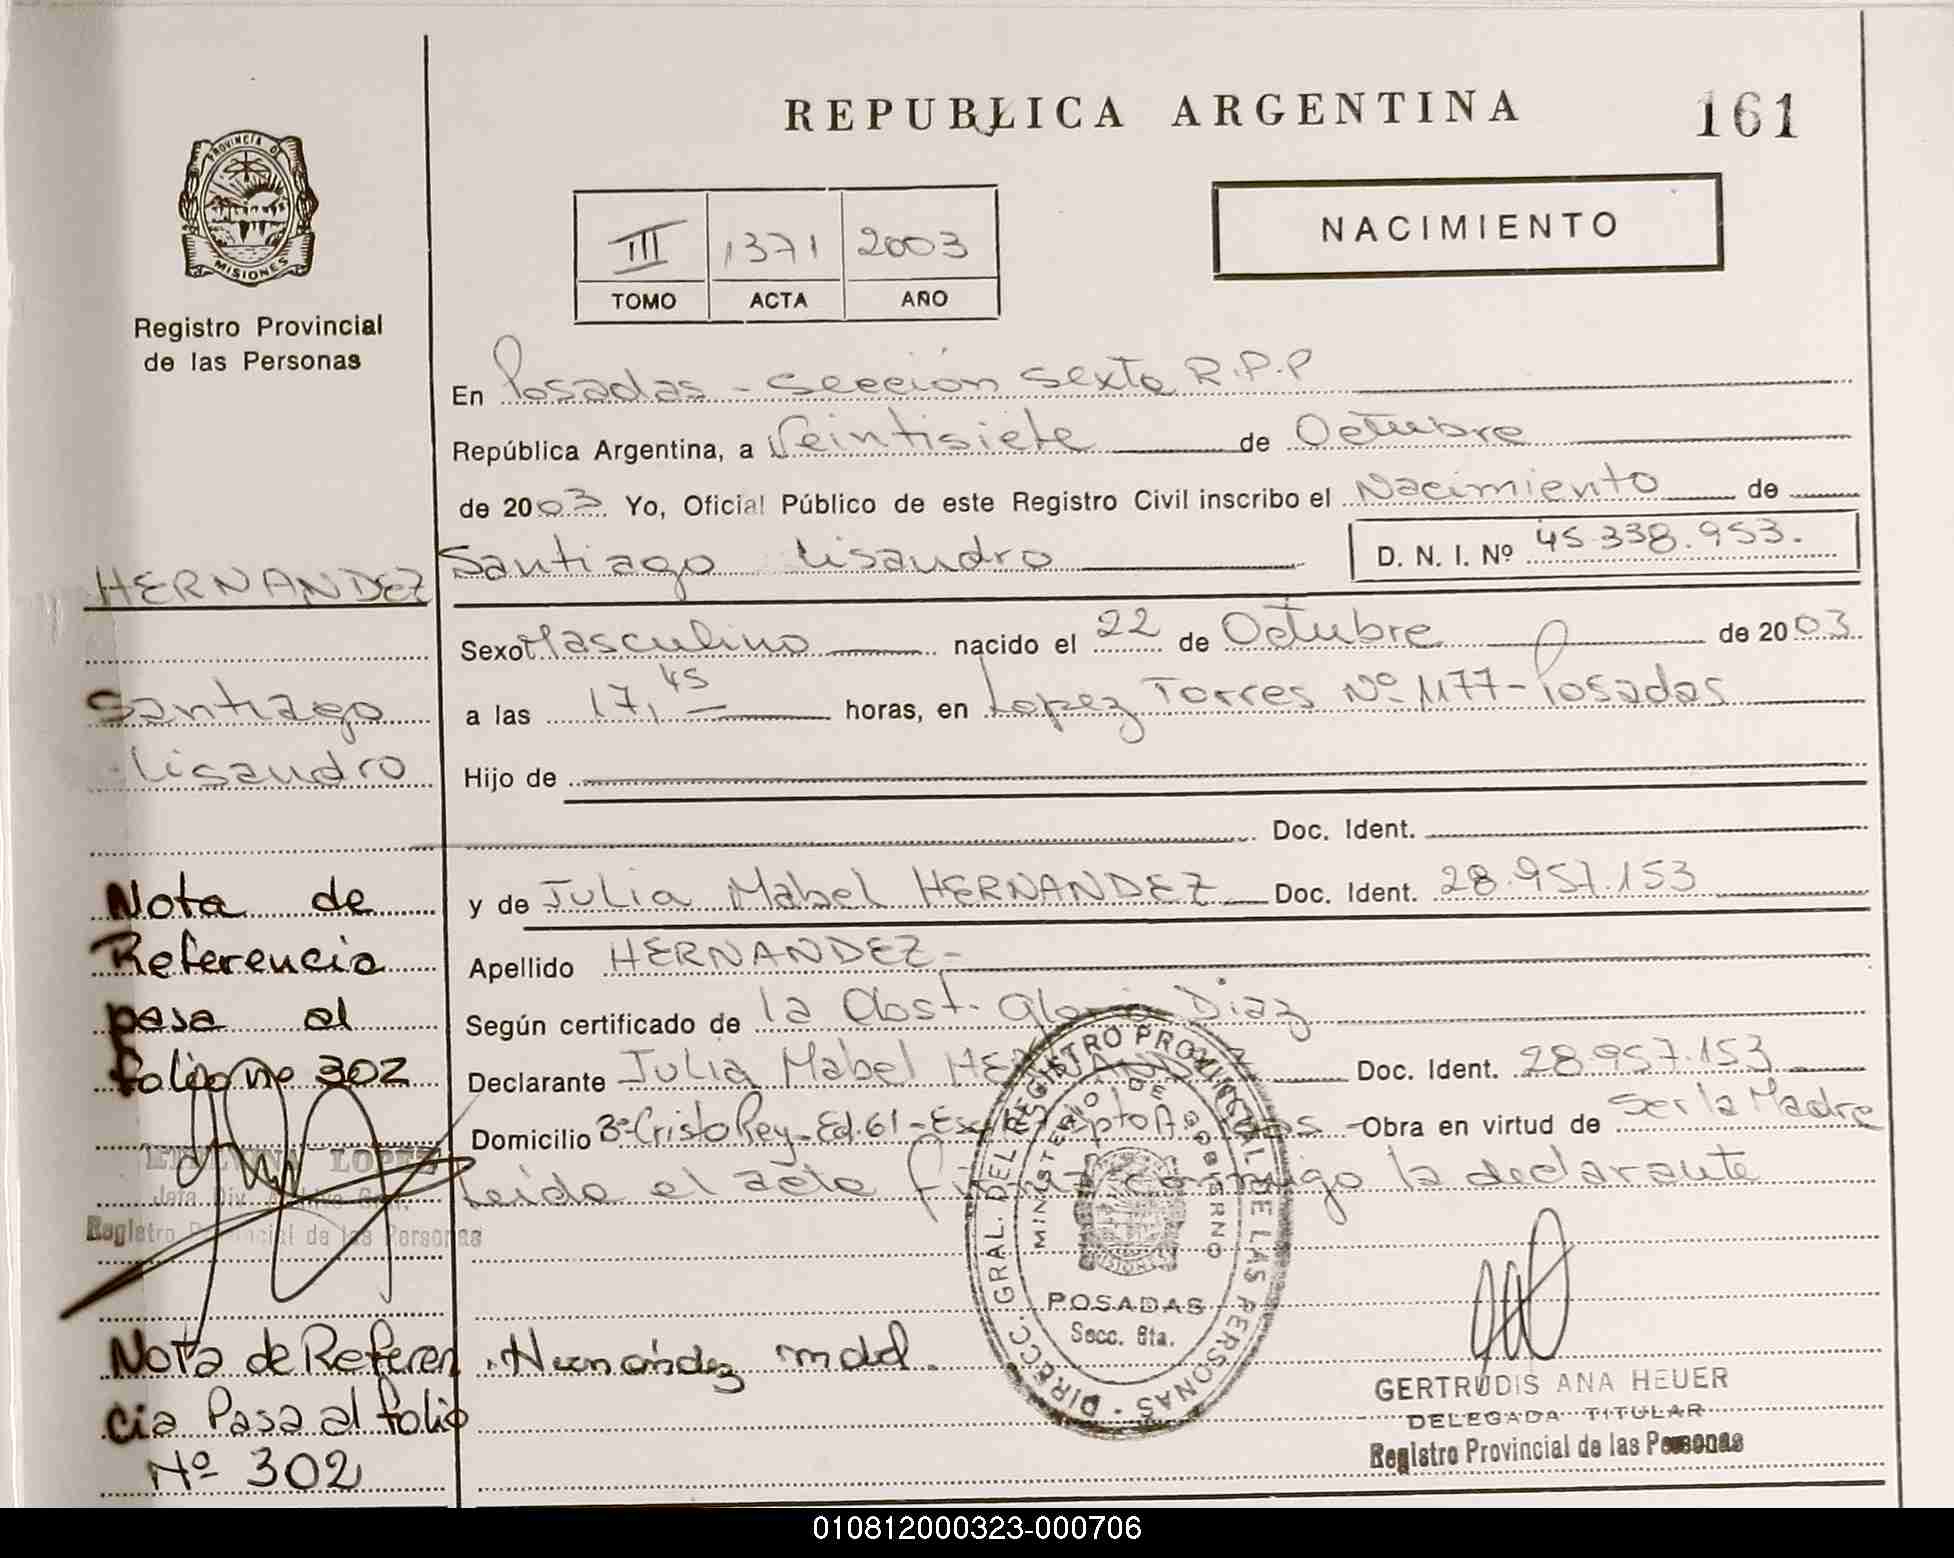 REPUBLICA ARGENTINA
161
PROVINCIA DE
MISIONES
Registro Provincial
de las Personas
III 1371 2003
TOMO ACTA AÑO
NACIMIENTO
En Posadas - Sección Sexta R.P.P
República Argentina, a Veintisiete de Octubre
de 2003 Yo, Oficial Público de este Registro Civil inscribo el Nacimiento de
Santiago Lisandro D. N. I. Nº 45.338.953.
HERNANDEZ
Santiago
Lisandro
Sexo Masculino nacido el 22 de Octubre de 2003
a las 17,45 horas, en Lopez Torres Nº 1177 - Posadas
Hijo de
Doc. Ident.
y de Julia Mabel HERNANDEZ Doc. Ident. 28.957.153
Apellido HERNANDEZ -
Según certificado de la Obst. Gloria Diaz
Declarante Julia Mabel HERNANDEZ Doc. Ident. 28.957.153
Domicilio Bº Cristo Rey - Ed. 61 - Dpto A Obra en virtud de Ser la Madre
Leida el acta firma conmigo la declarante
Nota de
Referencia
pasa al
folio no 302
ETELVINA LOPEZ
Jefa Div. Archivo Gral.
Registro Provincial de las Personas
Nota de Referen
cia Pasa al folio
Nº 302
Hernández
DIRECC. GRAL. DEL REGISTRO PROVINCIAL DE LAS PERSONAS
MINISTERIO DE GOBIERNO
MISIONES
POSADAS
Secc. 6ta.
GERTRUDIS ANA HEUER
DELEGADA TITULAR
Registro Provincial de las Personas
010812000323-000706